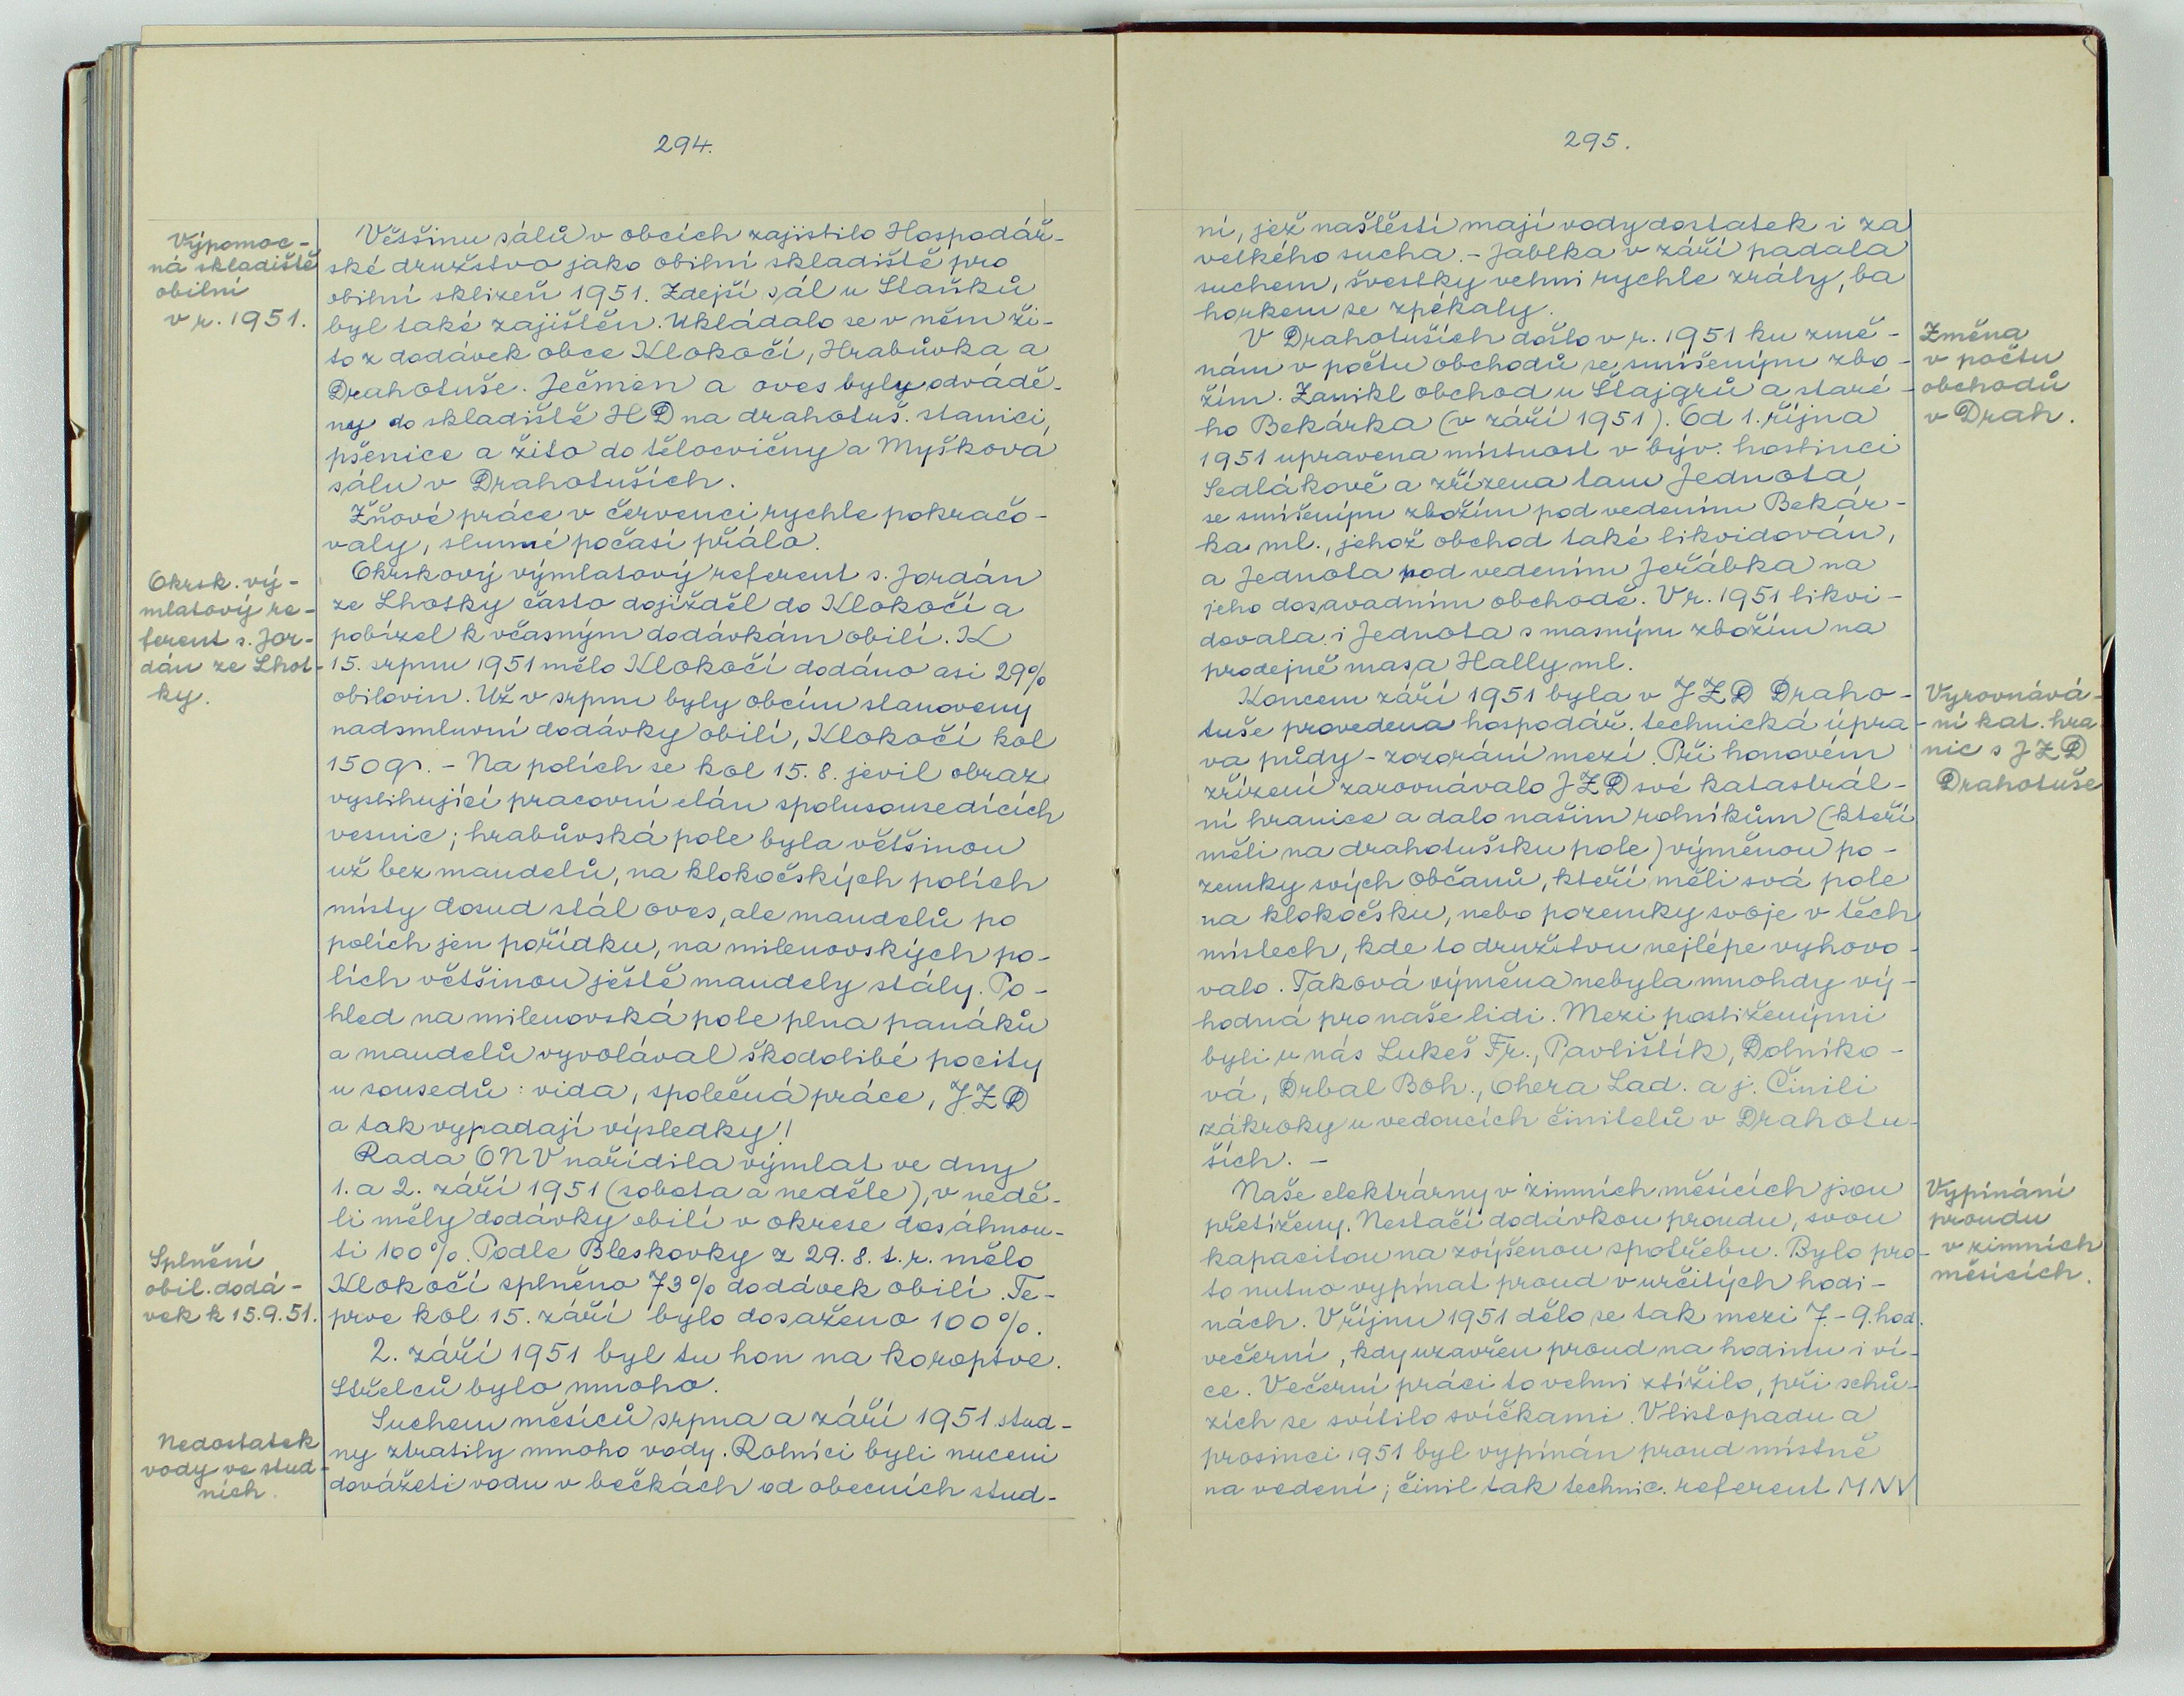 294.
Výpomoc-
ná skladiště
obilní
v r. 1951.
Většinu sálů v obcích zajistilo Hospodář-
ské družstvo jako obilní skladiště pro
obilní sklizeň 1951. Zdejší sál u Staňků
byl také zajištěn. Ukládalo se v něm ži-
to z dodávek obce Klokočí, Hrabůvka a
Drahotuše. Ječmen a oves byly odvádě-
ny do skladiště HD na drahotuš. stanici,
pšenice a žito do tělocvičny a Myškova
sálu v Drahotuších.
Žňové práce v červenci rychle pokračo-
valy, slunné počasí přálo.
Okrsk. vý-
mlatový re-
ferent s. Jor-
dán ze Lhot-
ky.
Okrskový výmlatový referent s. Jordán
ze Lhotky často dojížděl do Klokočí a
pobízel k včasným dodávkám obilí. K
15. srpnu 1951 mělo Klokočí dodáno asi 29%
obilovin. Už v srpnu byly obcím stanoveny
nadsmluvní dodávky obilí, Klokočí kol
150 q. - Na polích se kol 15. 8. jevil obraz
vystihující pracovní elán spolusousedících
vesnic; hrabůvská pole byla většinou
už bez mandelů, na klokočských polích
místy dosud stál oves, ale mandelů po
polích jen pořídku, na milenovských po-
lích většinou ještě mandely stály. Po-
hled na milenovská pole plna panáků
a mandelů vyvolával škodolibé pocity
u sousedů: vida, společná práce, JZD
a tak vypadají výsledky!
Rada ONV nařídila výmlat ve dny
1. a 2. září 1951 (sobota a neděle), v nedě-
li měly dodávky obilí v okrese dosáhnou-
ti 100%. Podle Bleskovky z 29. 8. t. r. mělo
Klokočí splněno 73% dodávek obilí. Te-
prve kol 15. září bylo dosaženo 100%.
Splnění
obil. dodá-
vek k 15.9.51.
2. září 1951 byl tu hon na koroptve.
Střelců bylo mnoho.
Suchem měsíců srpna a září 1951 stud-
ny ztratily mnoho vody. Rolníci byli nuceni
dovážeti vodu v bečkách od obecních stud-
Nedostatek
vody ve stud-
ních.
295.
ní, jež naštěstí mají vody dostatek i za
velkého sucha. - Jablka v září padala
suchem, švestky velmi rychle zrály, ba
horkem se zpékaly.
V Drahotuších došlo v r. 1951 ku změ-
nám v počtu obchodů se smíšeným zbo-
žím. Zanikl obchod u Štajgrů a staré-
ho Bekárka (v září 1951). Od 1. října
1951 upravena místnost v býv. hostinci
Sedlákově a zřízena tam Jednota
se smíšeným zbožím pod vedením Bekár-
ka ml., jehož obchod také likvidován,
a Jednota pod vedením Jeřábka na
jeho dosavadním obchodě. V r. 1951 likvi-
dovala i Jednota s masným zbožím na
prodejně masa Hally ml.
Změna
v počtu
obchodů
v Drah.
Koncem září 1951 byla v JZD Draho-
tuše provedena hospodář. technická úpra-
va půdy - rozorání mezí. Při honovém
zřízení zarovnávalo JZD své katastrál-
ní hranice a dalo našim rolníkům (kteří
měli na drahotušsku pole) výměnou po-
zemky svých občanů, kteří měli svá pole
na klokočsku, nebo pozemky svoje v těch
místech, kde to družstvu nejlépe vyhovo-
valo. Taková výměna nebyla mnohdy vý-
hodná pro naše lidi. Mezi postiženými
byli u nás Lukeš Fr., Pavlištík, Dolníko-
vá, Drbal Boh., Ohera Lad. a j. Činili
zákroky u vedoucích činitelů v Drahotu-
ších. -
Vyrovnává-
ní kat. hra-
nic s JZD
Drahotuše
Naše elektrárny v zimních měsících jsou
přetíženy. Nestačí dodávkou proudu, svou
kapacitou na zvýšenou spotřebu. Bylo pro-
to nutno vypínat proud v určitých hodi-
nách. V říjnu 1951 dělo se tak mezi 7.-9. hod.
večerní, kdy uzavřen proud na hodinu i ví-
ce. Večerní práci to velmi ztížilo, při schů-
zích se svítilo svíčkami. V listopadu a
prosinci 1951 byl vypínán proud místně
na vedení; činil tak technic. referent MNV
Vypínání
proudu
v zimních
měsících.